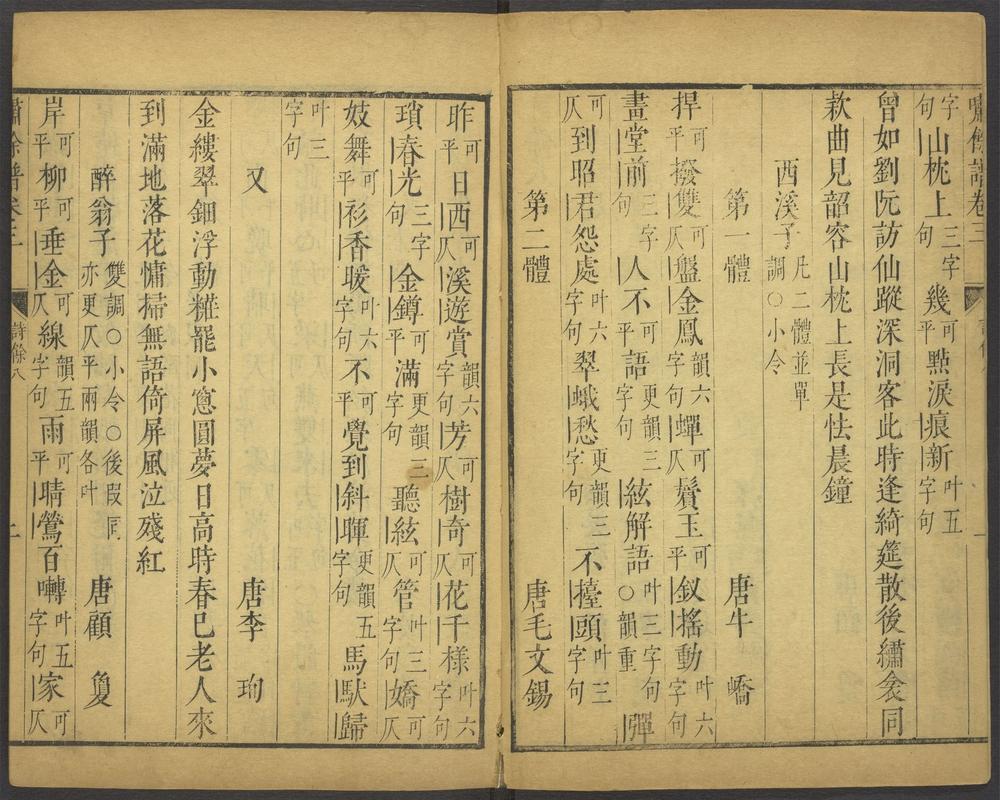 嘯餘譜卷三
字句山枕上三字句幾可平點淚痕新叶五字句
曾如劉阮訪仙蹤深洞客此時逢綺筵散後繡衾同
款曲見韶容山枕上長是怯晨鐘
西溪子凡二體並單調○小令
第一體 唐牛嶠
捍可平撥雙可仄盤金鳳韻六字句蟬可仄鬢玉可平釵搖動叶六字句
畫堂前三字句人不可平語更韻三字句絃解語叶三字句○韻重彈
可仄到昭君怨處叶六字句翠蛾愁更韻三字句不擡頭叶三字句
第二體 唐毛文錫
昨可平日西可仄溪遊賞韻六字句芳可仄樹奇可仄花千樣叶六字句
瑣春光三字句金鐏可平滿更韻三字句聽絃可仄管叶三字句嬌可仄
妓舞可平衫香暖叶六字句不可平覺到斜暉更韻五字句馬馱歸
叶三字句
又 唐李珣
金縷翠鈿浮動糚罷小窓圓夢日高時春已老人來
到滿地落花慵掃無語倚屏風泣殘紅
醉翁子雙調○小令○後段同亦更仄平兩韻各叶 唐顧夐
岸可平柳可平垂金可仄線韻五字句雨可平晴鶯百囀叶五字句家可仄
嘯餘譜卷三 詩餘八 二